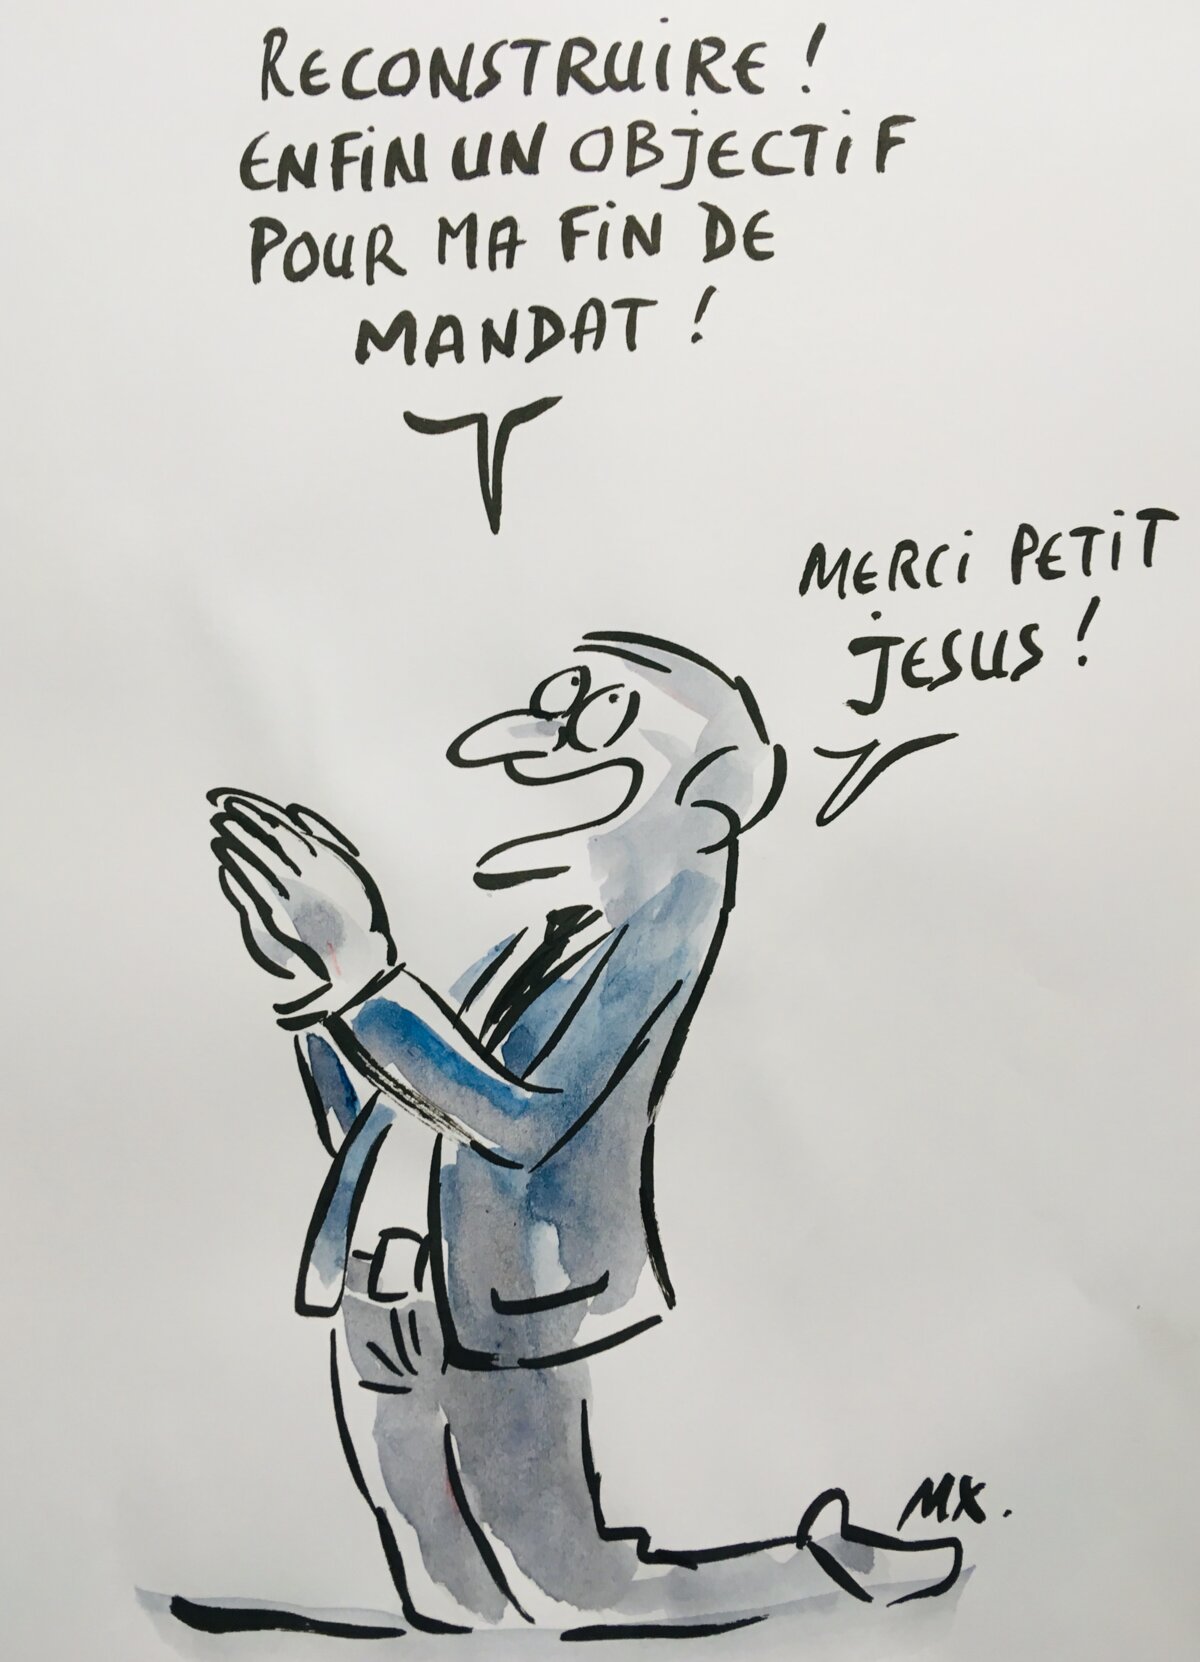 RECONSTRUIRE !
ENFIN UN OBJECTIF
POUR MA FIN DE
MANDAT !
MERCI PETIT
JESUS !
MX.